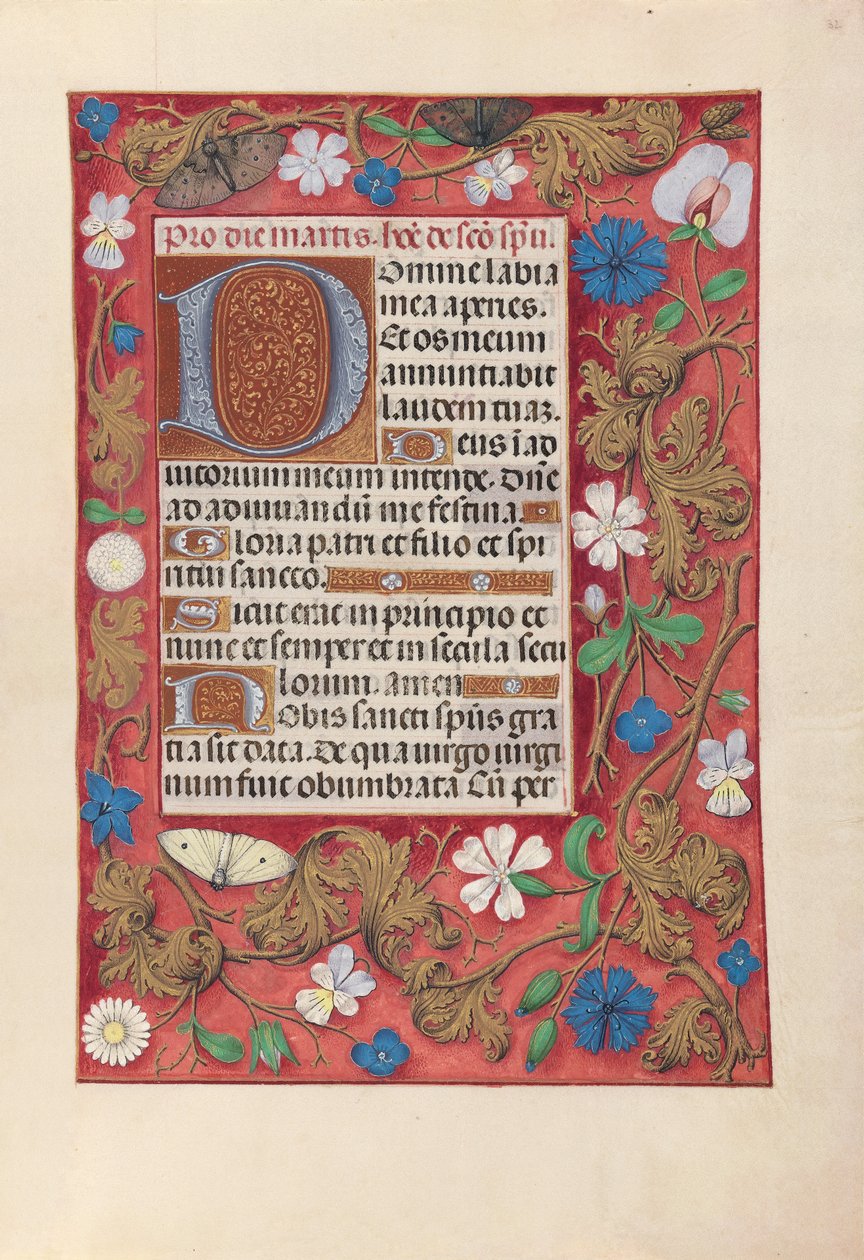 32
Pro die martis. hoẽ de scõ spũ.
Domine labia
mea aperies.
Et os meum
annunciabit
laudem tuaz.
Deus ĩ ad
iutorium meum intende. Dñe
ad adiuuandũ me festina.
Gloria patri et filio et spi
ritui sancto.
Sicut erat in principio et
nunc et semper et in secula secu
lorum. Amen
Nobis sancti spũs gra
tia sit data. De qua uirgo uirgi
num fuit obumbrata Cũ per